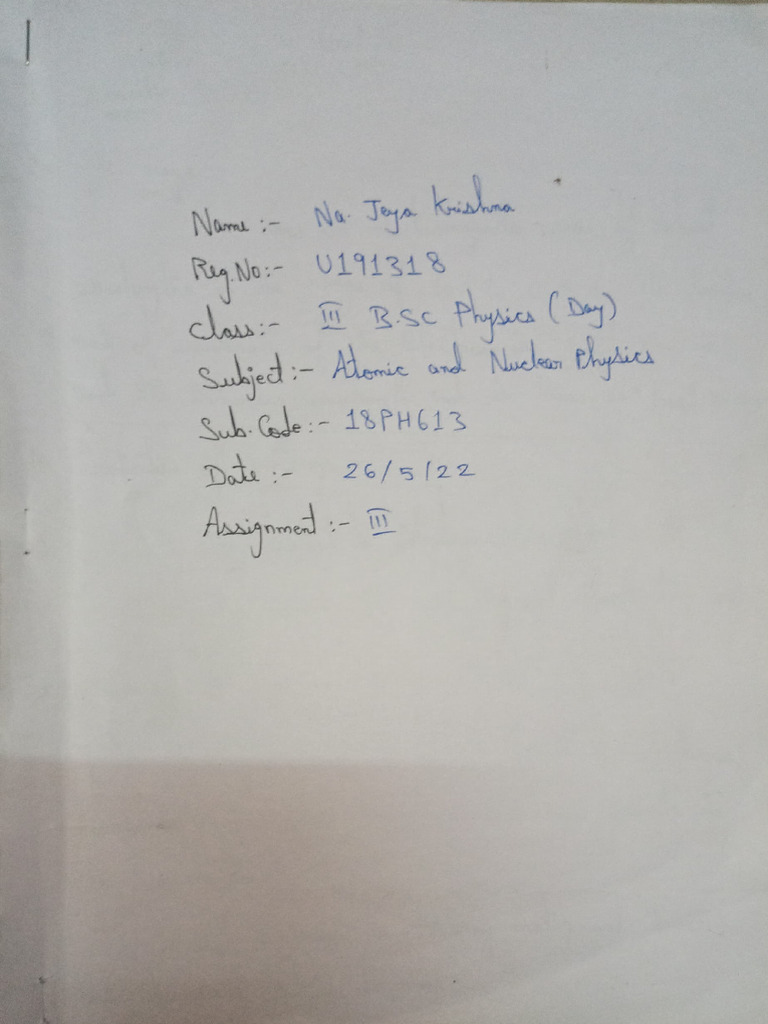 Name :- Na. Jeya Krishna
Reg.No:- U191318
Class:- III B.SC Physics (Day)
Subject:- Atomic and Nuclear Physics
Sub.Code:- 18PH613
Date :- 26/5/22
Assignment :- III